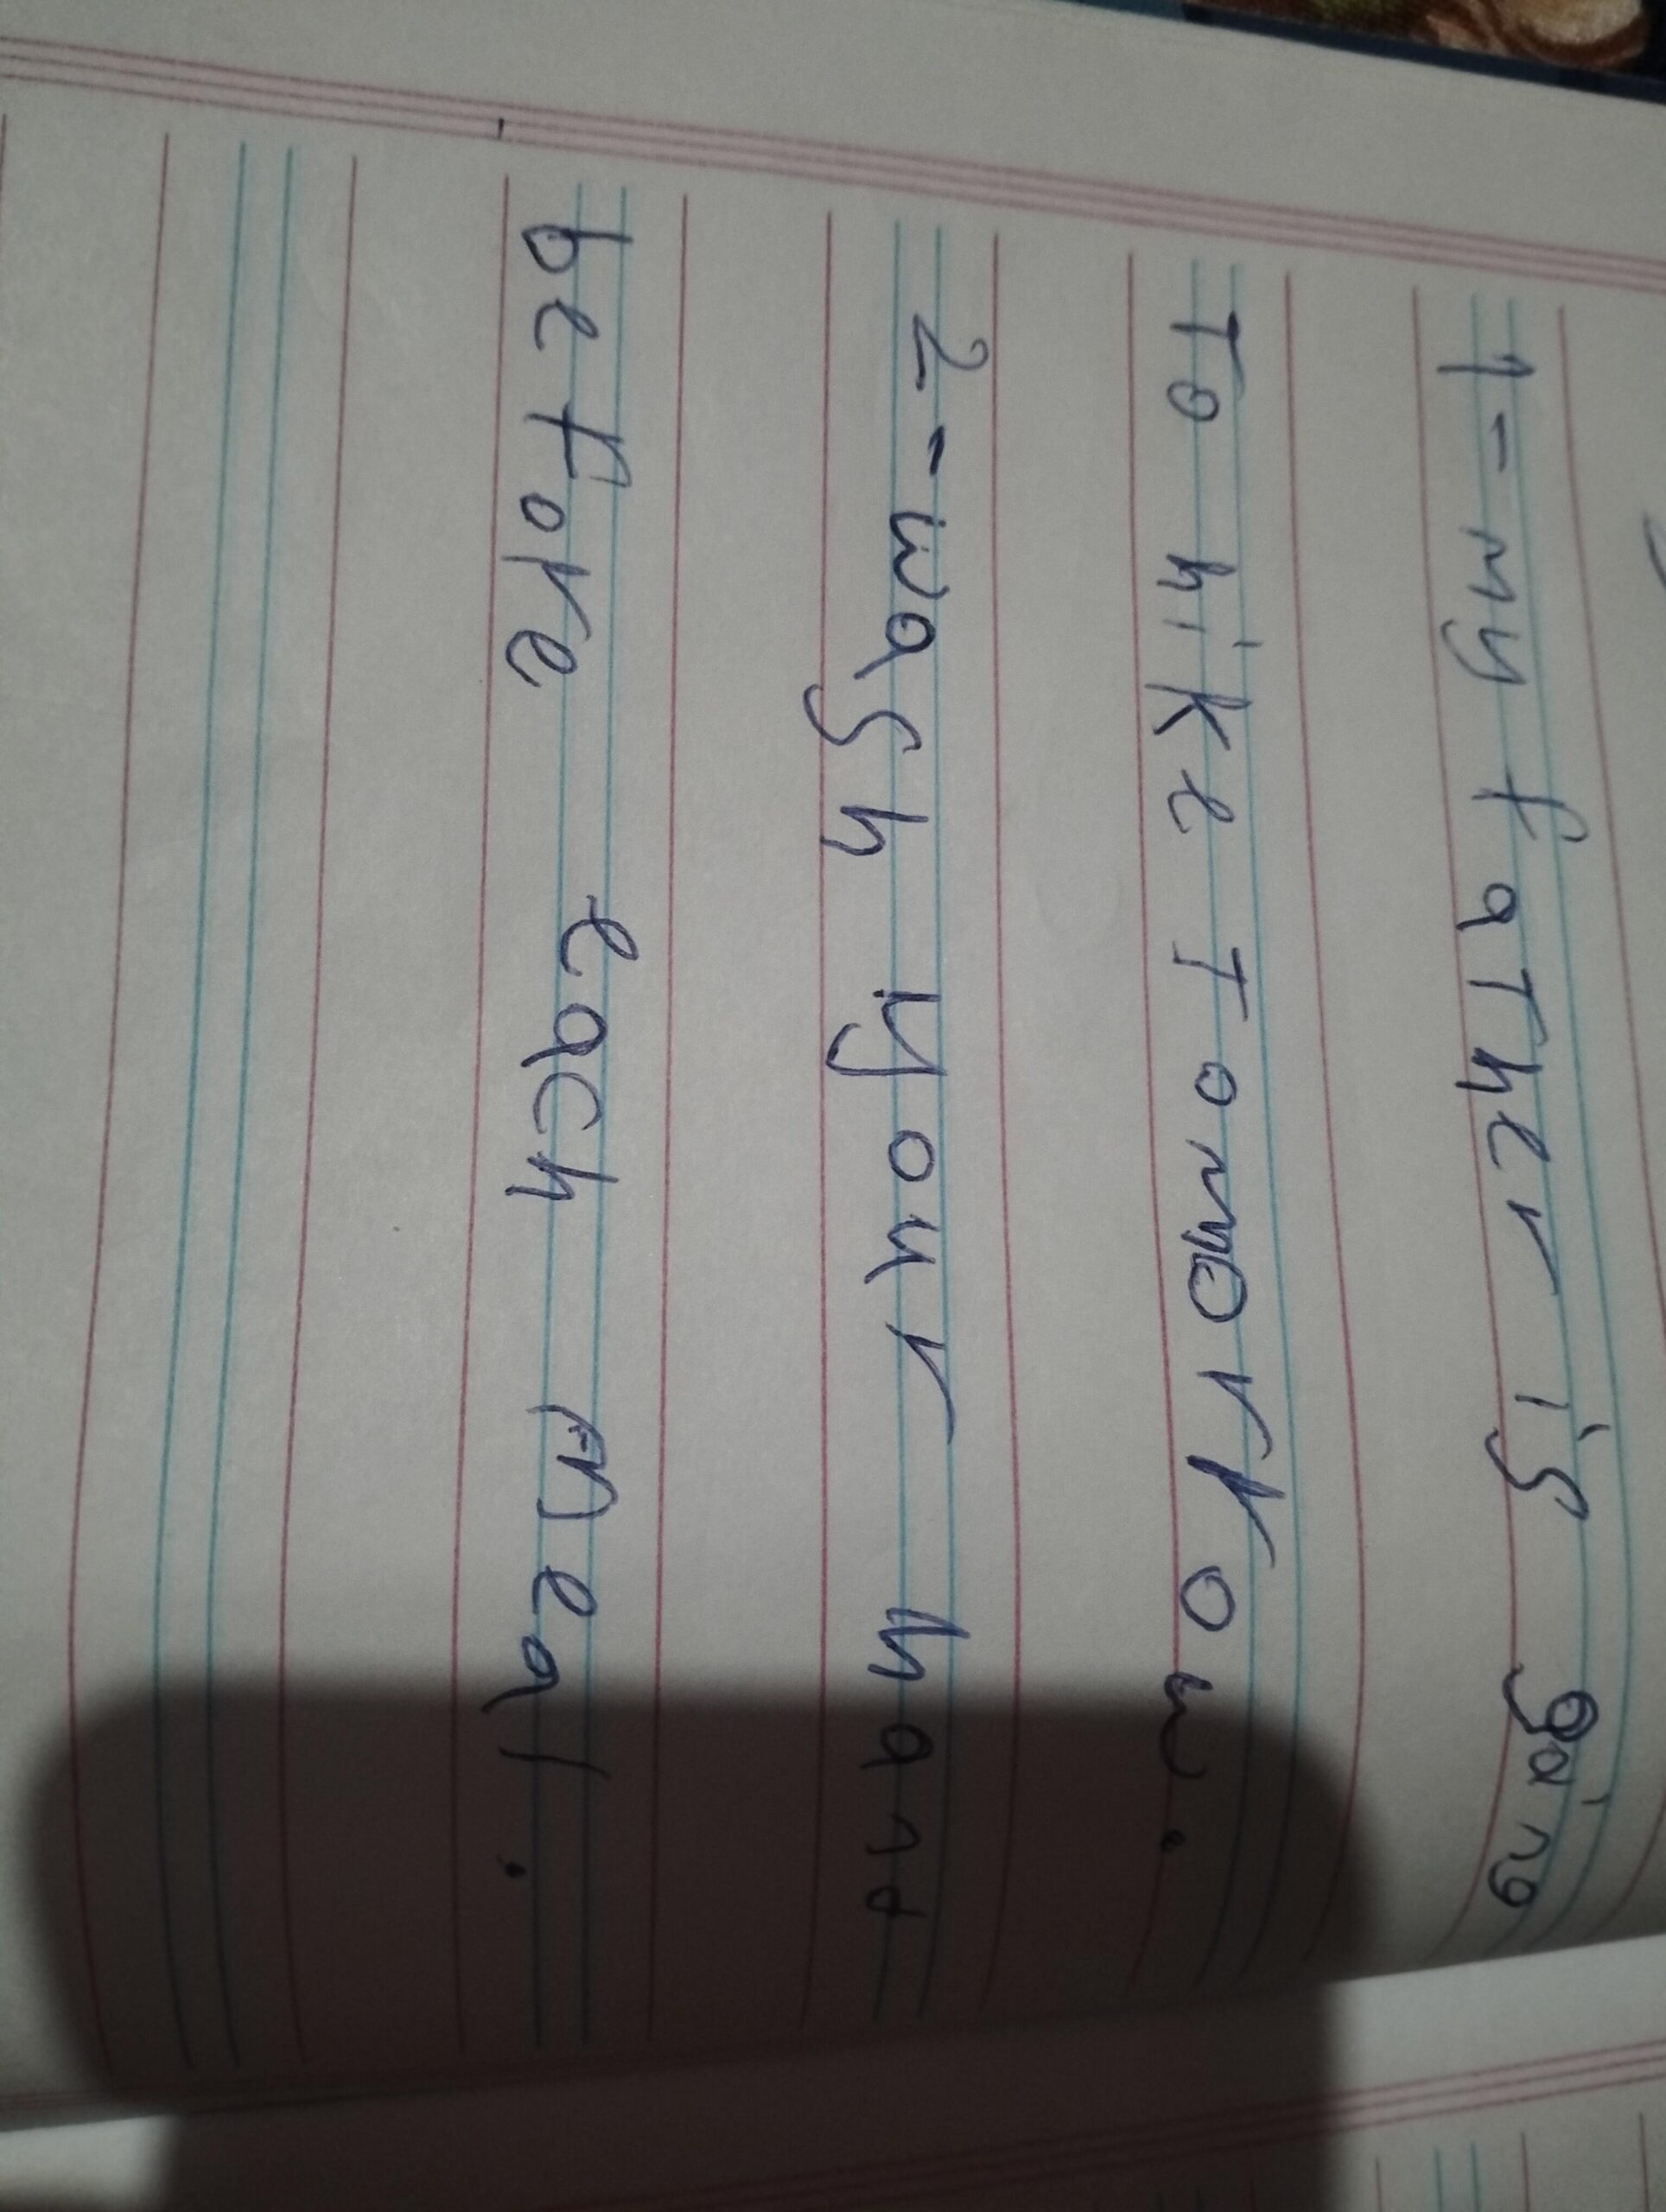 1 - my father is going
To hike Tomorrow.
2 - wash your hand
before each meal.